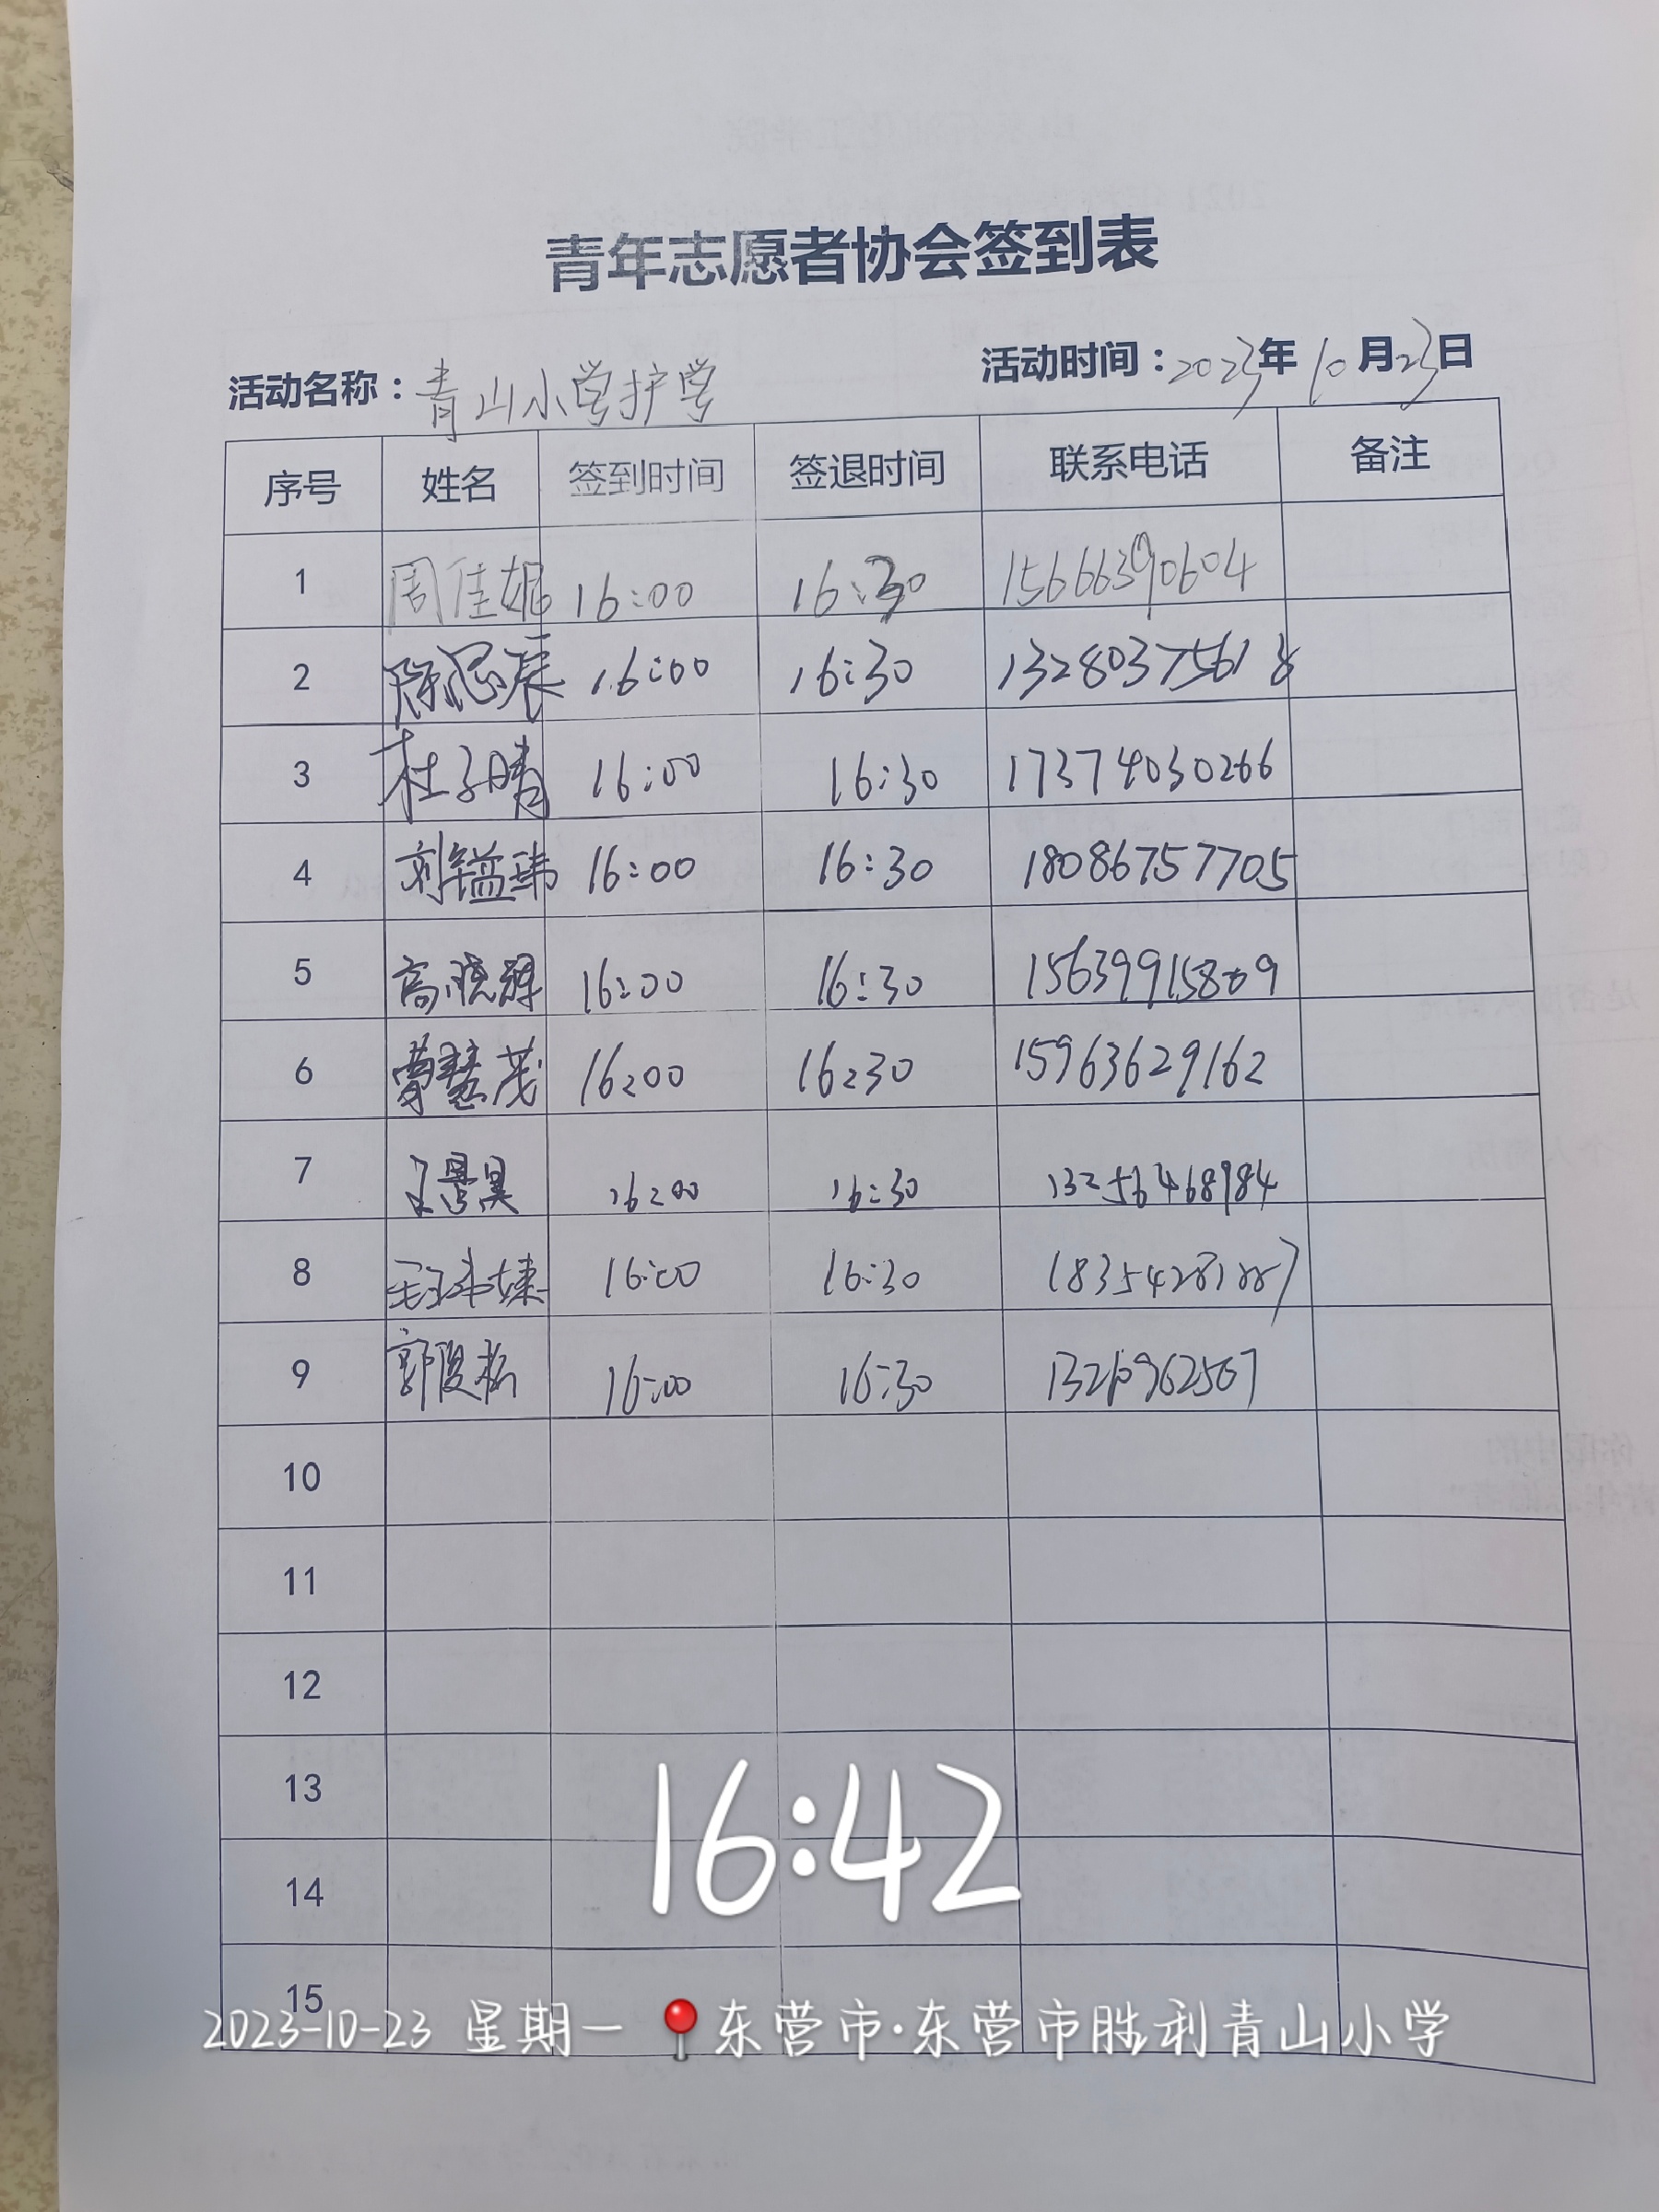 青年志愿者协会签到表
活动名称：青山小学护学 活动时间：2023年10月23日
序号 姓名 签到时间 签退时间 联系电话 备注
1 周佳妮 16:00 16:30 15666390604
2 陈思辰 16:00 16:30 13280375618
3 杜子晴 16:00 16:30 17374030266
4 刘镒玮 16:00 16:30 18086757705
5 高晓辉 16:00 16:30 15639915809
6 曹慧茂 16:00 16:30 15963629162
7 王景昊 16:00 16:30 13256468984
8 16:00 16:30
9 郭俊彬 16:00 16:30
10
11
12
13
14
16:42
15
2023-10-23 星期一 东营市·东营市胜利青山小学